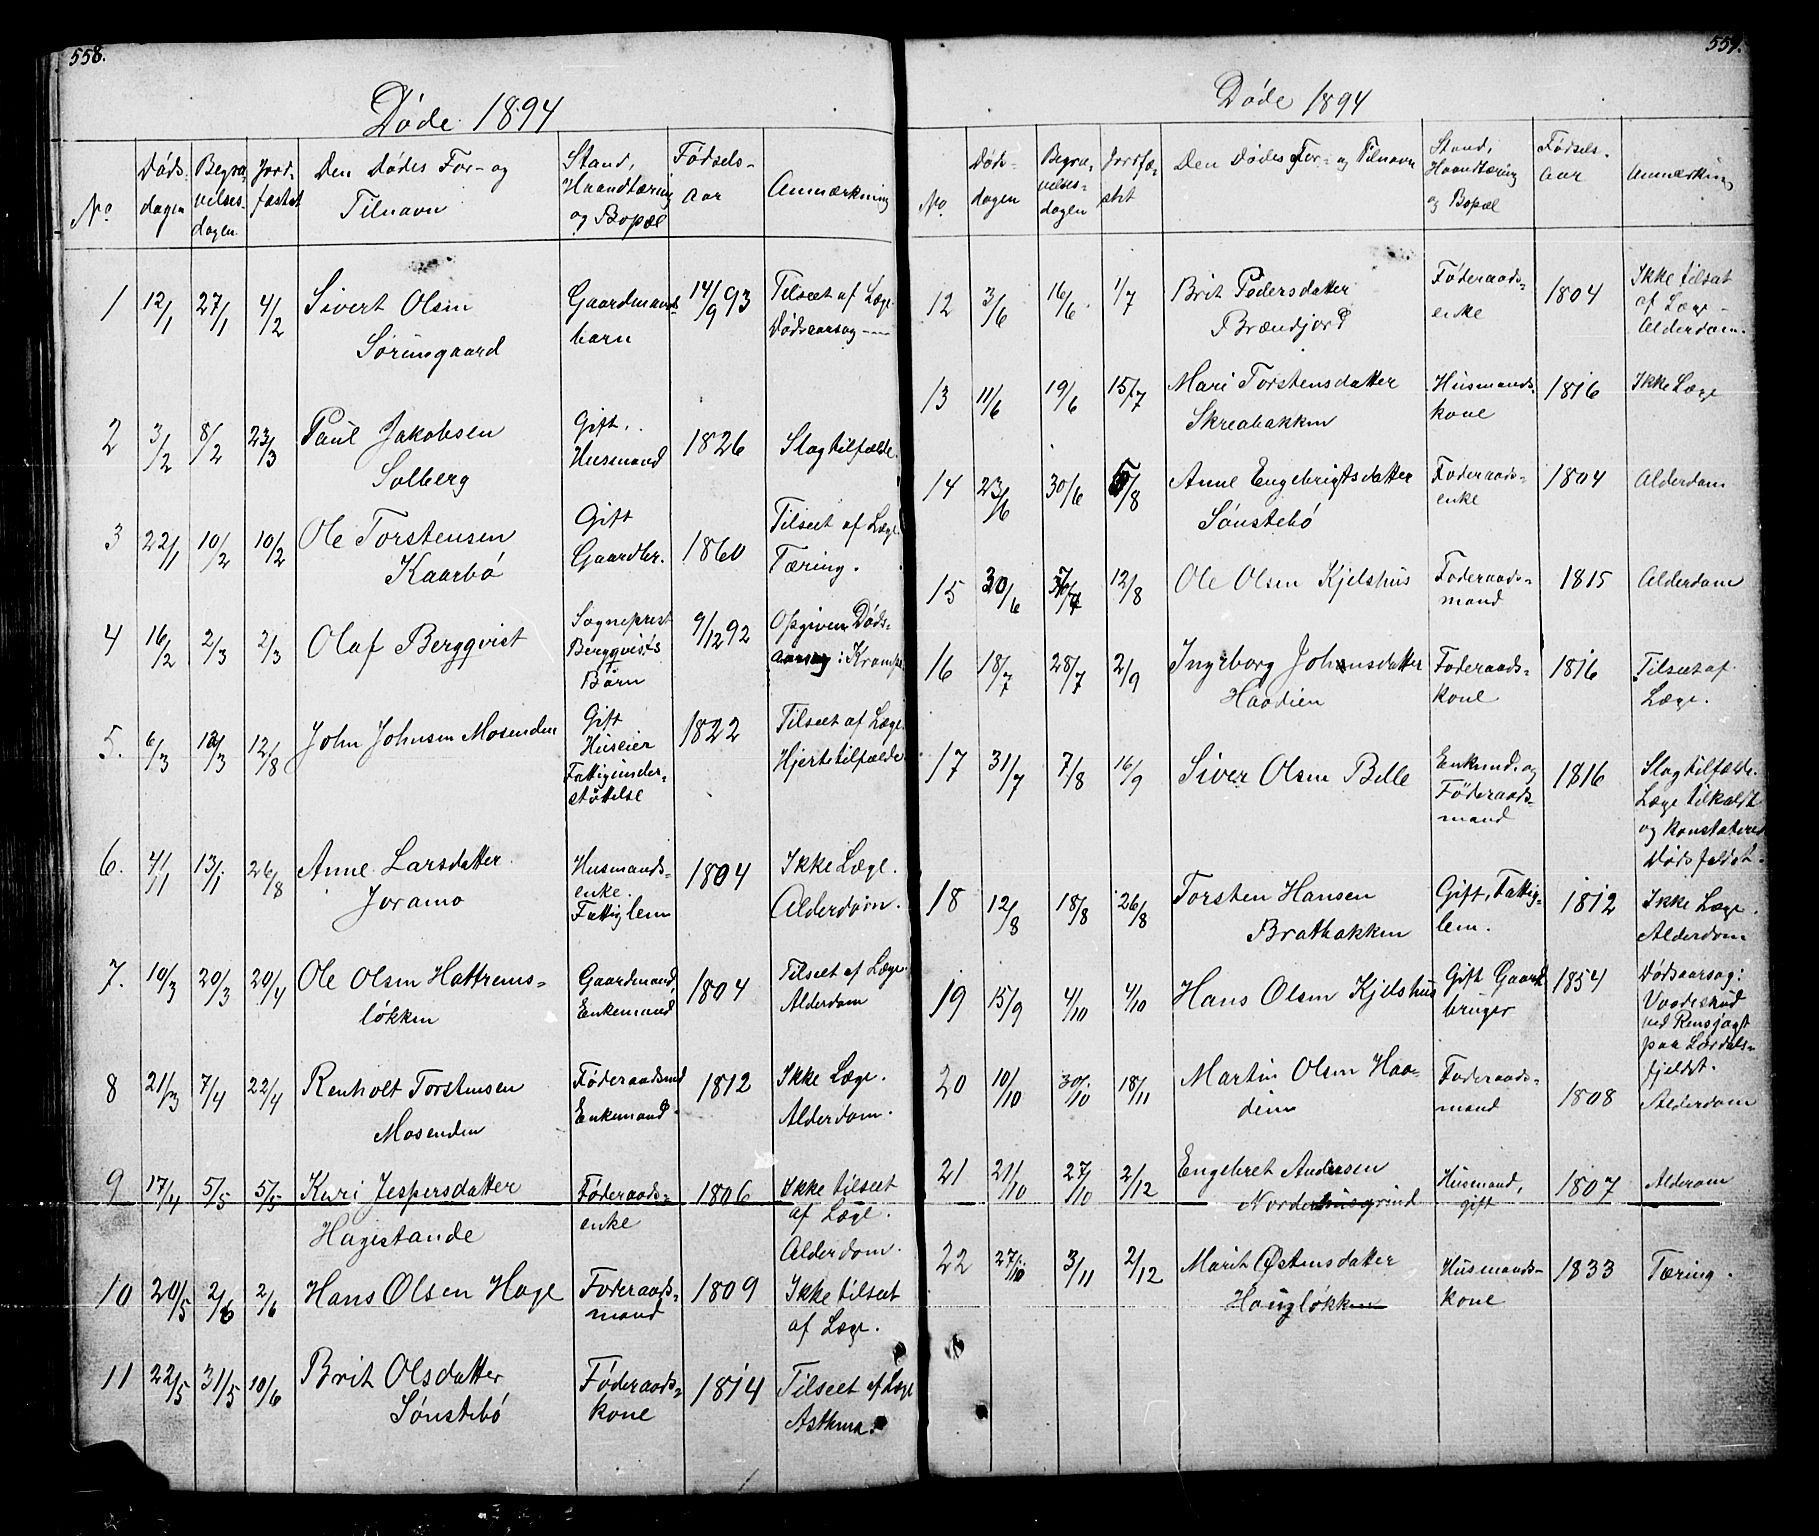 558.
Døde 1894
No. Døds-dagen Begra-velses-dagen Jord-fæstet Den Dødes For- og Tilnavn Stand, Haandtæring og Bopæl Fødsels-aar Anmærkning
1 12/1 27/1 4/2 Sivert Olsen Gaardmands- 14/9 93 Tilseet af Læge.
Søriusgaard barn Dødsaarsag ----
2 3/2 8/2 23/3 Paul Jakobsen Gift. 1826 Slagtilfælde.
Solberg Husmand
3 22/1 10/2 10/2 Ole Torstensen Gift 1860 Tilseet af Læge.
Kaarbø Gaardbr. Tæring.
4 16/2 2/3 2/3 Olaf Bergqvist Sogneprest 9/12 92 Opgiven Døds-
Bergqvists aarsag: Krampe
Børn
5. 6/3 12/3 12/8 John Johnsen Mosenden Gift 1822 Tilseet af Læge.
Huseier Hjertetilfælde.
Fattigunder-
støttelse
6. 4/1 13/1 26/8 Anne Larsdatter Husmands- 1804 Ikke Læge.
Joramo enke. Alderdom.
Fattiglem
7. 10/3 20/3 20/4 Ole Olsen Hattrems- Gaardmand, 1804 Tilseet af Læge.
løkken Enkemand Alderdom
8 21/3 7/4 22/4 Renholt Torstensen Føderaadsmd 1812 Ikke Læge.
Mosenden Enkemand. Alderdom.
9 17/4 5/5 5/5 Kari Jespersdatter Føderaads- 1806 Ikke tilseet
Hagestande enke af Læge.
Alderdom.
10 20/5 2/6 2/6 Hans Olsen Hage Føderaads- 1809 Ikke tilseet
mand af Læge.
11 22/5 31/5 10/6 Brit Olsdatter Føderaads- 1814 Tilseet af Læge
Sønstebø kone Asthma.
559.
Døde 1894
No. Døds-dagen Begra-velses-dagen Jordfæ-stet Den Dødes For- og Tilnavn Stand, Haandtæring og Bopæl Fødsels-aar Anmærkning
12 3/6 16/6 1/7 Brit Pedersdatter Føderaads- 1804 Ikke tilseet
Brændjord enke af Læge -
Alderdom.
13 11/6 19/6 15/7 Mari Torstensdatter Husmands- 1816 Ikke Læge
Skreabakken kone
14 23/6 30/6 5/8 Anne Engebrigtsdatter Føderaads- 1804 Alderdom
Sønstebø enke
15 30/6 7/7 12/8 Ole Olsen Kjelshus Føderaads- 1815 Alderdom
mand
16 18/7 28/7 2/9 Ingeborg Johnsdatter Føderaads- 1816 Tilseet af
Haadien kone Læge.
17 31/7 7/8 16/9 Siver Olsen Belle Enkemd. og 1816 Slagtilfælde.
Føderaads- Læge tilkaldt
mand og konstatered
Dødsfaldet.
18 12/8 18/8 26/8 Torsten Hansen Gift, Fattig- 1812 Ikke Læge.
Bratbakken lem. Alderdom
19 15/9 4/10 4/10 Hans Olsen Kjelshus Gift Gaard 1854 Dødsaarsag:
bruger Vaadeskud
ved Rensjagt
paa Lærdals-
fjeldet.
20 10/10 30/10 18/11 Martin Olsen Haa- Føderaads- 1808 Alderdom
dein mand
21 21/10 27/10 2/12 Engebret Andersen Husmand, 1807 Alderom
Nordenhusgrind gift
22 27/10 3/11 2/12 Marit Østensdatter Husmands- 1833 Tæring.
Haugløkken kone